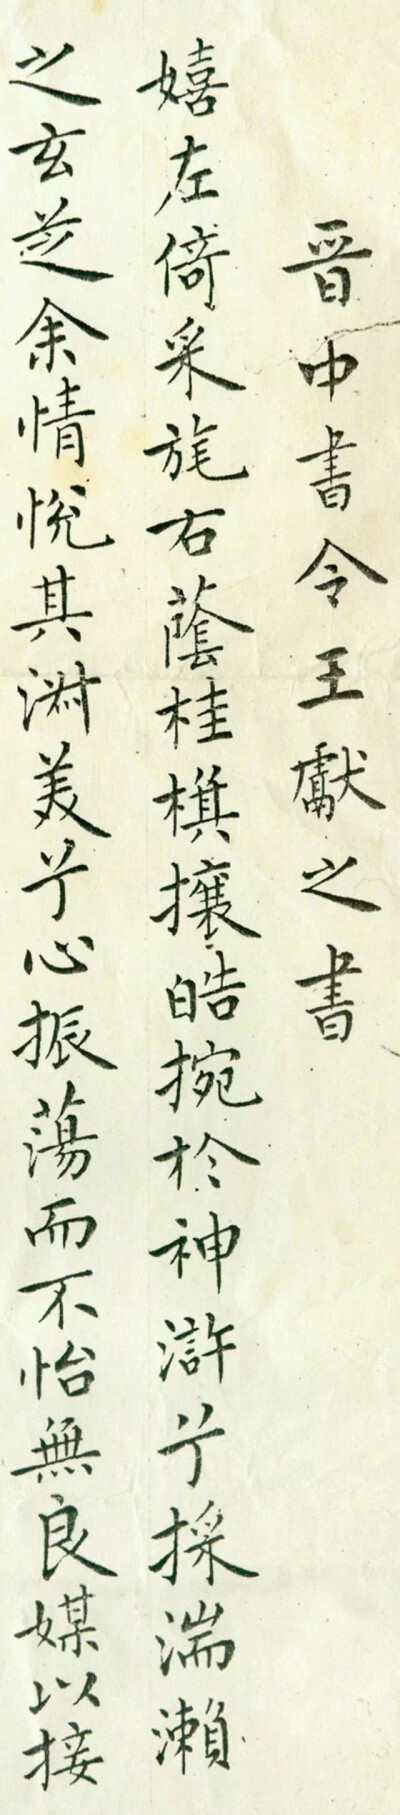 晉中書令王獻之書
嬉左倚采旄右蔭桂旗攘皓捥於神滸兮採湍瀨
之玄芝余情悅其淑美兮心振蕩而不怡無良媒以接